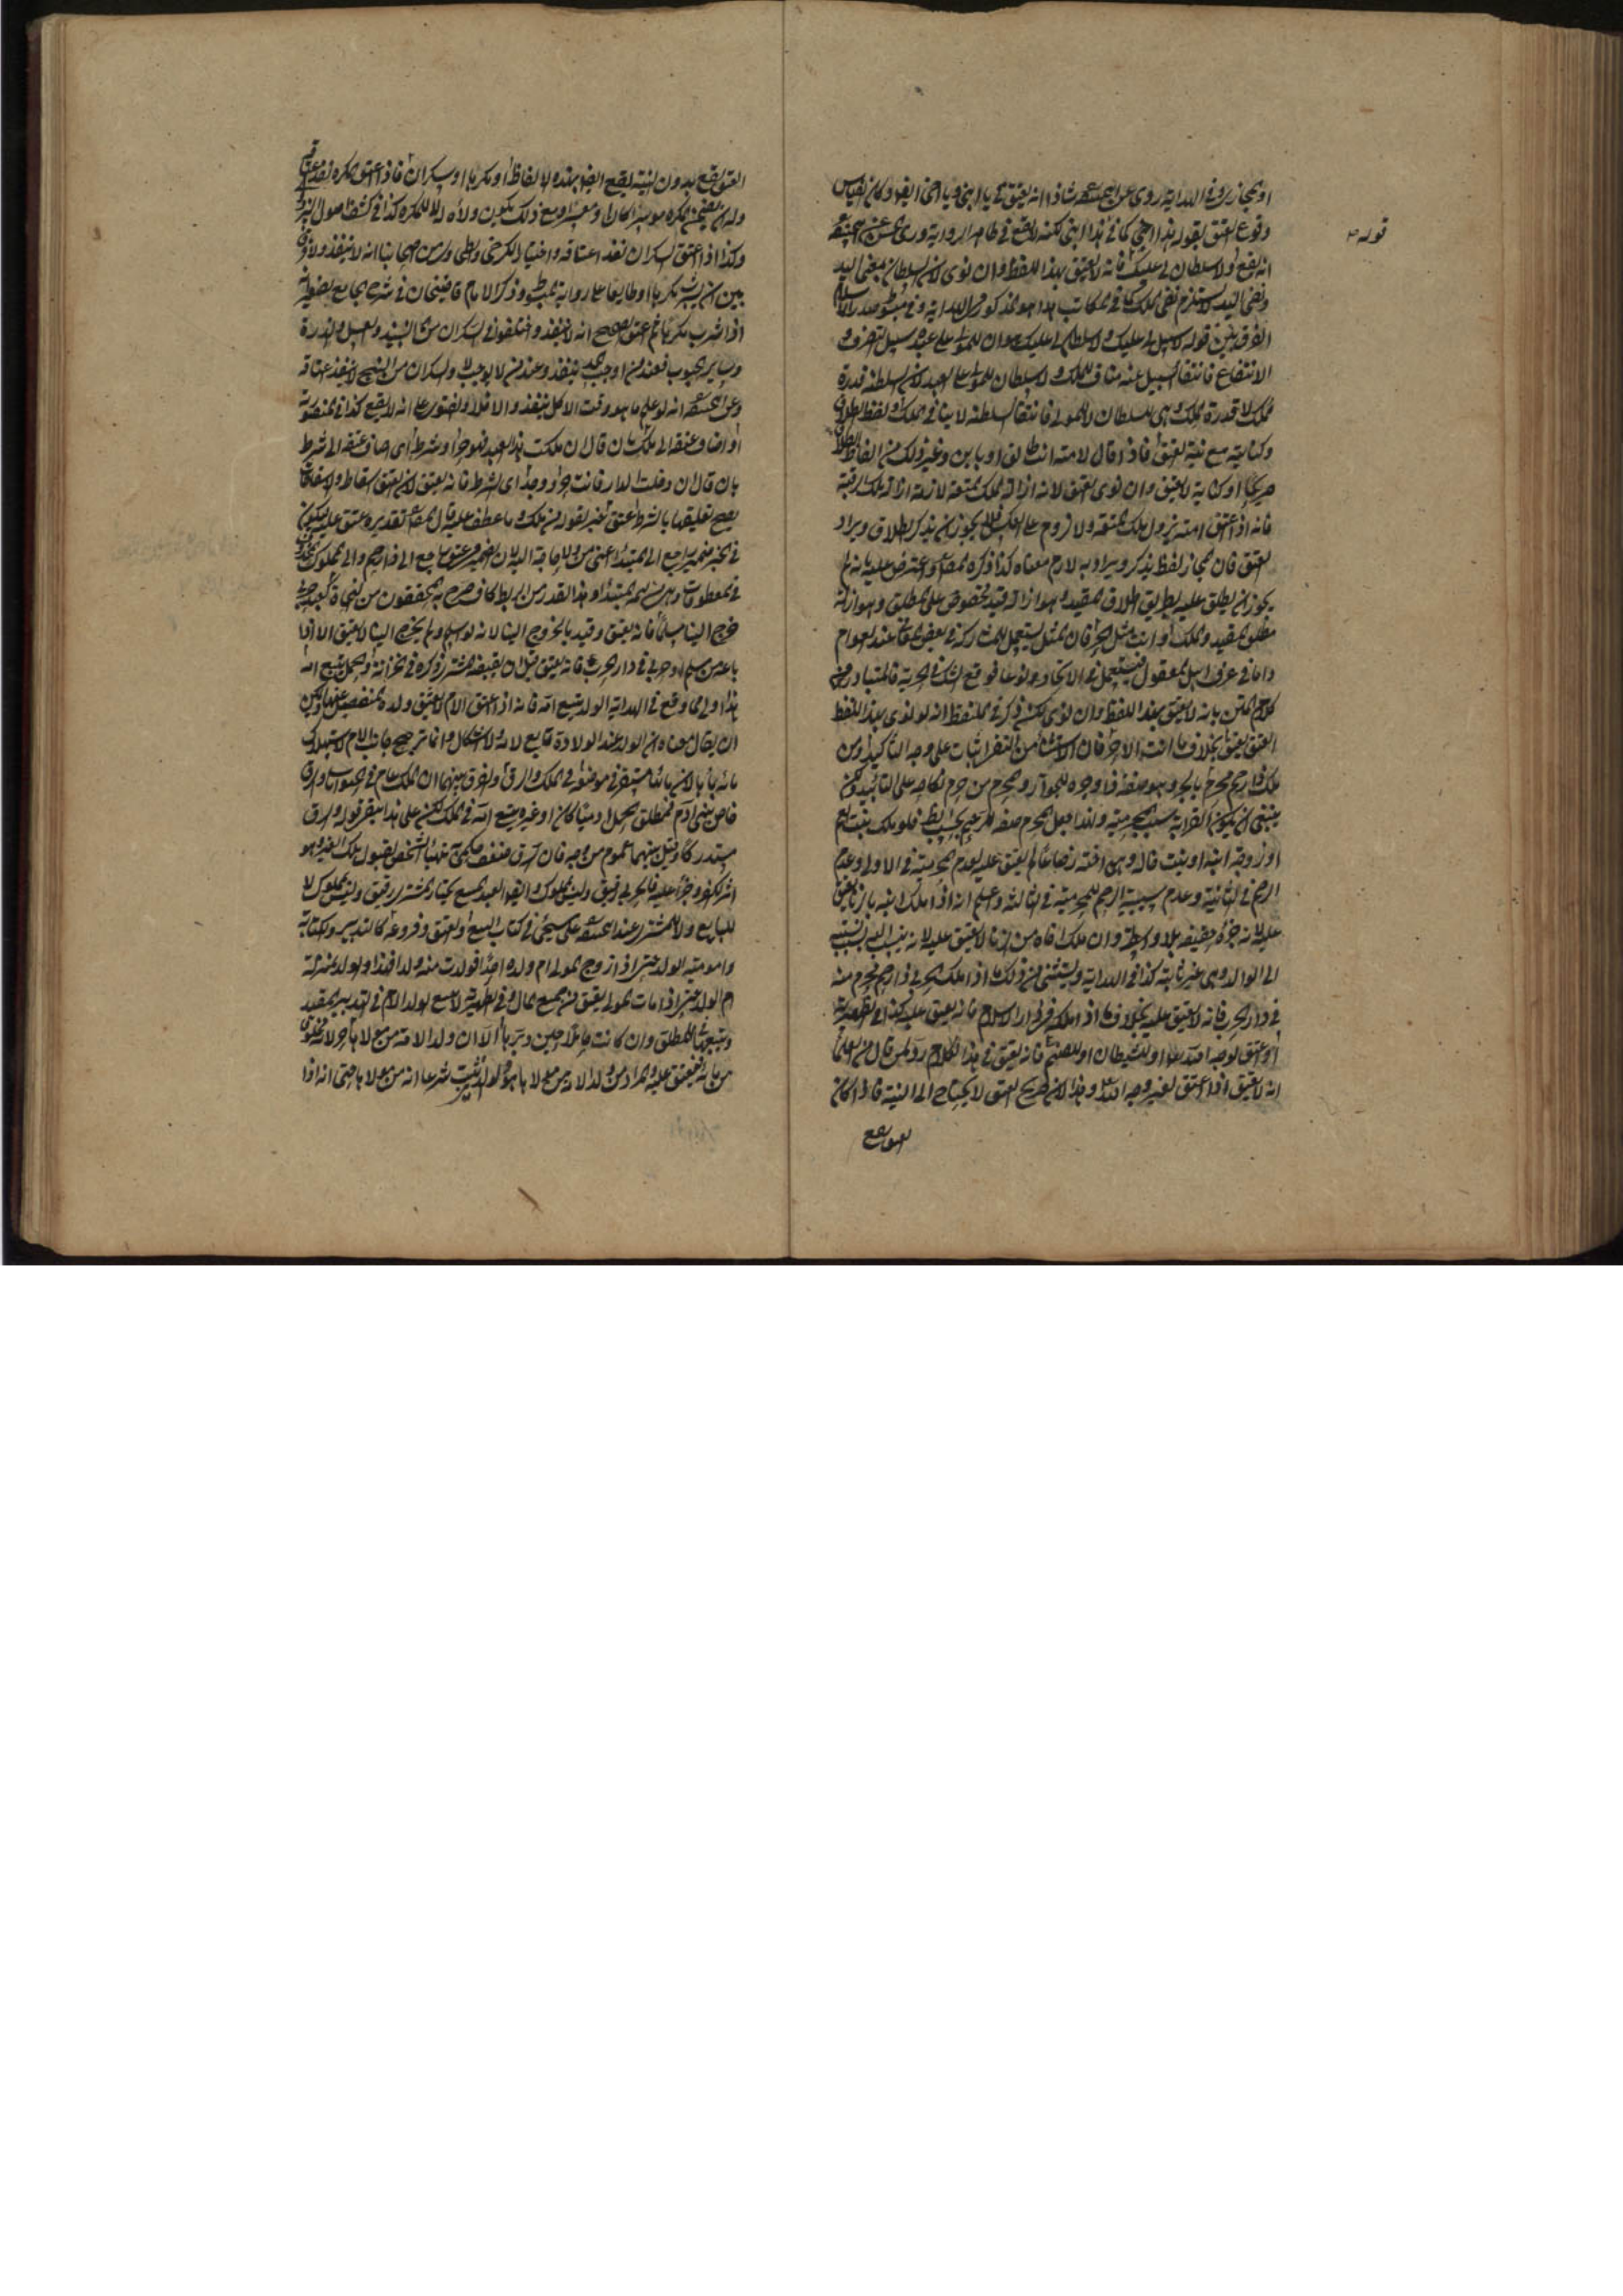 او المجاز وفى الهداية روى عن ابى حنيفة شاذا انه يعتق فى يا ابنى ويا اخى ايضا وكان القياس
قوله
وقوع العتق بقوله هذا اخى كما فى هذا ابنى لكنه لا يقع فى ظاهر الرواية وروى عن ابى حنيفة
انه يقع ولا سلطان لى عليك فانه لا يعتق بهذا اللفظ وان نوى لان السلطان بمعنى اليد
ونفى اليد لا يستلزم نفى الملك كما فى المكاتب هذا هو المذكور فى الهداية وفى مبسوط صدر الاسلام
الفرق بين قوله لا سبيل لى عليك ولا سلطان لى عليك ان للمولى على عبده سبيل التصرف و
الانتفاع فانتفاء السبيل عنه مناف للملك ولا سلطان للمولى على العبد لان السلطنة قدرة
الملك لا قدرة الملك وهى للسلطان لا للمولى فانتفاء السلطنة لا ينافى الملك ولفظ الطلاق
وكنايته مع نية العتق فاذا قال لامته انت طالق او باين وغير ذلك من الفاظ الطلاق
صريحا او كناية لا يعتق وان نوى العتق لانه ازالة ملك المتعة لازمة ازالة ملك الرقبة
فانه اذا اعتق امته يزول ملك المتعة ولا لزوم على العكس فلا يجوز ان يذكر الطلاق ويراد
العتق فان المجاز لفظ يذكر ويراد به لازم معناه كذا ذكره المصنف واعترض عليه بانه لم
يجوز ان يطلق عليه بطريق اطلاق المقيد وهو ازالة قيد مخصوص على المطلق وهو ازالة
مطلق القيد والملك او انت مثل الحر فان المثل يستعمل للمشاركة فى بعض المعانى عند العوام
واما فى عرف اهل المعقول فيستعمل فى الاتحاد نوعا فوقع الشك فى الحرية فالمتبادر من
كلام المتن بانه لا يعتق بهذا اللفظ وان نوى لكن ذكر فى الملتقط انه لو نوى بهذا اللفظ
العتق يعتق بخلاف ما انت الا حر فان الاستثناء من النفى اثبات على وجه التاكيد ومن
ملك ذا رحم محرم بالجر وهو صفة ذا وجره للجوار والمحرم من حرم نكاحه على التابيد
ينبغى ان يكون القرابة سبب المحرمية ولهذا جعل المحرم صفة للرحم فلو ملك بنت عم
او زوجة ابنه او بنت خاله وهى اخته رضاعا لم يعتق عليه لعدم المحرمية فى الاولى وعدم
الرحم فى الثانية وعدم سببية الرحم للمحرمية فى الثالثة واعلم انه اذا ملك ابنه بالزنا يعتق
عليه لانه جزؤه حقيقة بلا واسطة وان ملك اخاه من الزنا لا يعتق عليه لانه ينسب اليه بنسبته
الى الوالد وهى غير ثابتة كذا فى الهداية ويستثنى من ذلك ما اذا ملك الحربى ذا رحم محرم منه
فى دار الحرب فانه لا يعتق عليه بخلاف ما اذا ملكه فى دار الاسلام فانه يعتق عليه كذا فى الظهيرية
او اعتق لوجه الله تعالى او للشيطان او للصنم فانه يعتق فى هذا الكلام رد لمن قال من العلماء
انه لا يعتق اذا اعتق لغير وجه الله تعالى وهذا لان صريح العتق لا يحتاج الى النية فاذا كان
العتق يقع
العتق يقع بدون النية يقع ايضا بهذه الالفاظ او مكرها او سكران فاذا اعتق المكره نفذ عتقه
وله ان يضمن المكره موسرا كان او معسرا ومع ذلك يكون ولاؤه للمكره كذا فى كشف اصول البزدوى
وكذا اذا اعتق السكران نفذ اعتاقه واختيار الكرخى والطحاوى من اصحابنا انه لا ينفذ ولا فرق
بين ان يشرب مكرها او طايعا على رواية المبسوط وذكر الامام قاضيخان فى شرح الجامع الصغير انه
اذا شرب مكرها ثم اعتق الصحيح انه لا ينفذ واختلفوا فى السكران من النبيذ والعسل والذرة
وساير الحبوب فعند من اوجب الحد ينفذ وعند من لا يوجب لا والسكران من البنج لا ينفذ عتاقه
وعن ابى حنيفة انه لو علم ما هو وقت الاكل ينفذ والا فلا والفتوى على انه لا يقع كذا فى المنصورية
او اضاف عتقه الى ملك بان قال ان ملكت هذا العبد فهو حر او شرط اى اضاف عتقه الى شرط
بان قال ان دخلت الدار فانت حر ووجد اى الشرط فانه يعتق لان العتق اسقاط والاسقاطات
يصح تعليقها بالشرط عتق خبر لقوله من ملك وما عطف عليه قال المصنف تقديره عتق عليه ليكون
فى الخبر ضمير يرجع الى المبتدا اعنى من ولا حاجة اليه لان الضمير فى عتق راجع الى ذا رحم والى المملوك
فى المعطوفات وهى من تتمة المبتدا وهذا القدر من الربط كاف صرح به المحققون من النحاة كعبد حربى
خرج الينا مسلما فانه يعتق وقيد بالخروج الينا لانه لو اسلم ولم يخرج الينا لا يعتق الا اذا
باعه من مسلم او حربى فى دار الحرب فانه يعتق قبل ان يقبضه المشترى ذكره فى الخزانة والحمل يتبع امه
هذا اولى مما وقع فى الهداية الولد يتبع امه فانه اذا اعتق الام لا يعتق ولده المنفصل عنها ويمكن
ان يقال معناه ان الولد عند الولادة تابع لامه ولا اشكال وانما ترجح جانب الام لاستهلاك
مائه بمائها لان ماءها مستقر فى موضعه فى الملك والرق والفرق بينهما ان الملك عام فى الحيوان والرق
خاص ببنى آدم فمطلق الحمل آدميا كان او غيره يتبع امه فى الملك لكن على هذا يبقى قوله والرق
مستدركا وقيل بينهما عموم من وجه فان الرق ضعف حكمى يتهيا الشخص لقبول ملك الغير وهو
اثر الكفر وجزاء عليه فالحربى رقيق وليس بمملوك وايضا العبد المبيع بخيار المشترى رقيق وليس بمملوك لا
للبايع ولا للمشترى عند ابى حنيفة على ما سيجئ فى كتاب البيع والعتق وفروعه كالتدبير والكتابة
وامومية الولد حتى اذا زوج المولى ام ولده احدا فولدت منه ولدا فهذا الولد بمنزلة
ام الولد حتى اذا مات المولى يعتق من جميع المال وفى الظهيرية لا يتبع الولد الام فى التدبير المقيد
ويتبعها فى المطلق وان كانت حاملا حين دبرها الا ان ولد الامة من مولاها حر لانه مخلوق
من مائه فيعتق عليه والمراد من ولد الامة من مولاها هو الولد الثابت شرعا انه من مولاها حتى انه اذا